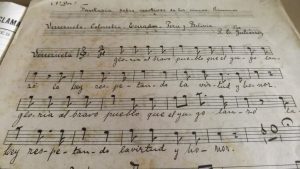 Fantasia sobre motivos de los himnos
Venezuela, Colombia, Ecuador, Perú y Bolivia
Gutiérrez
Venezuela
glo-ria al bravo pueblo que el yu-go lan-
zó la ley res-pe-tan-do la vir-tud y ho-nor.
glo-ria al bravo pueblo, que el yu-go lan-zó la
ley res-pe-tan-do la virtud y ho-nor.